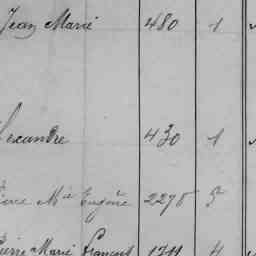 Jean Marie 480 1
lexandre 430 1
M<sup>ie</sup> Eugène 2278 5
Pierre Marie François 1711 4